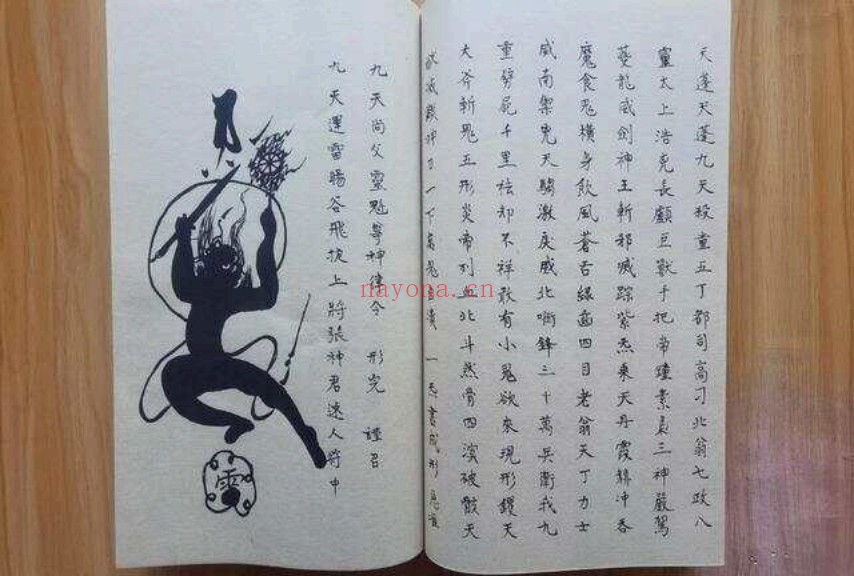 天蓬天蓬九天殺童五丁都司高刁北翁七政八
靈太上浩克長顱巨獸手把帝鐘素裊三神嚴駕
夔龍威劍神王斬邪滅踪紫炁乘天丹霞赫冲吞
魔食鬼橫身飲風蒼舌緑齒四目老翁天丁力士
威南禦兇天騶激戾威北啣鋒三十萬兵衛我九
重劈屍千里祛却不祥敢有小鬼欲來現形钁天
大斧斬鬼五形炎帝列血北斗然骨四溟破骸天
猷滅類神刀一下萬鬼自潰 一炁書成形見
九天尚父靈魁尊神律令 形完 謹召
九天運雷暘谷飛捷上將張神君速入符中
雷
nayona.cn